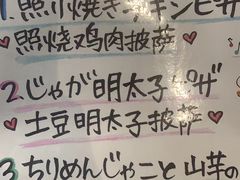 1.照り焼きチキンピザ
照烧鸡肉披萨
2.じゃが明太子ピザ
土豆明太子披萨
3.ちりめんじゃこと山芋の